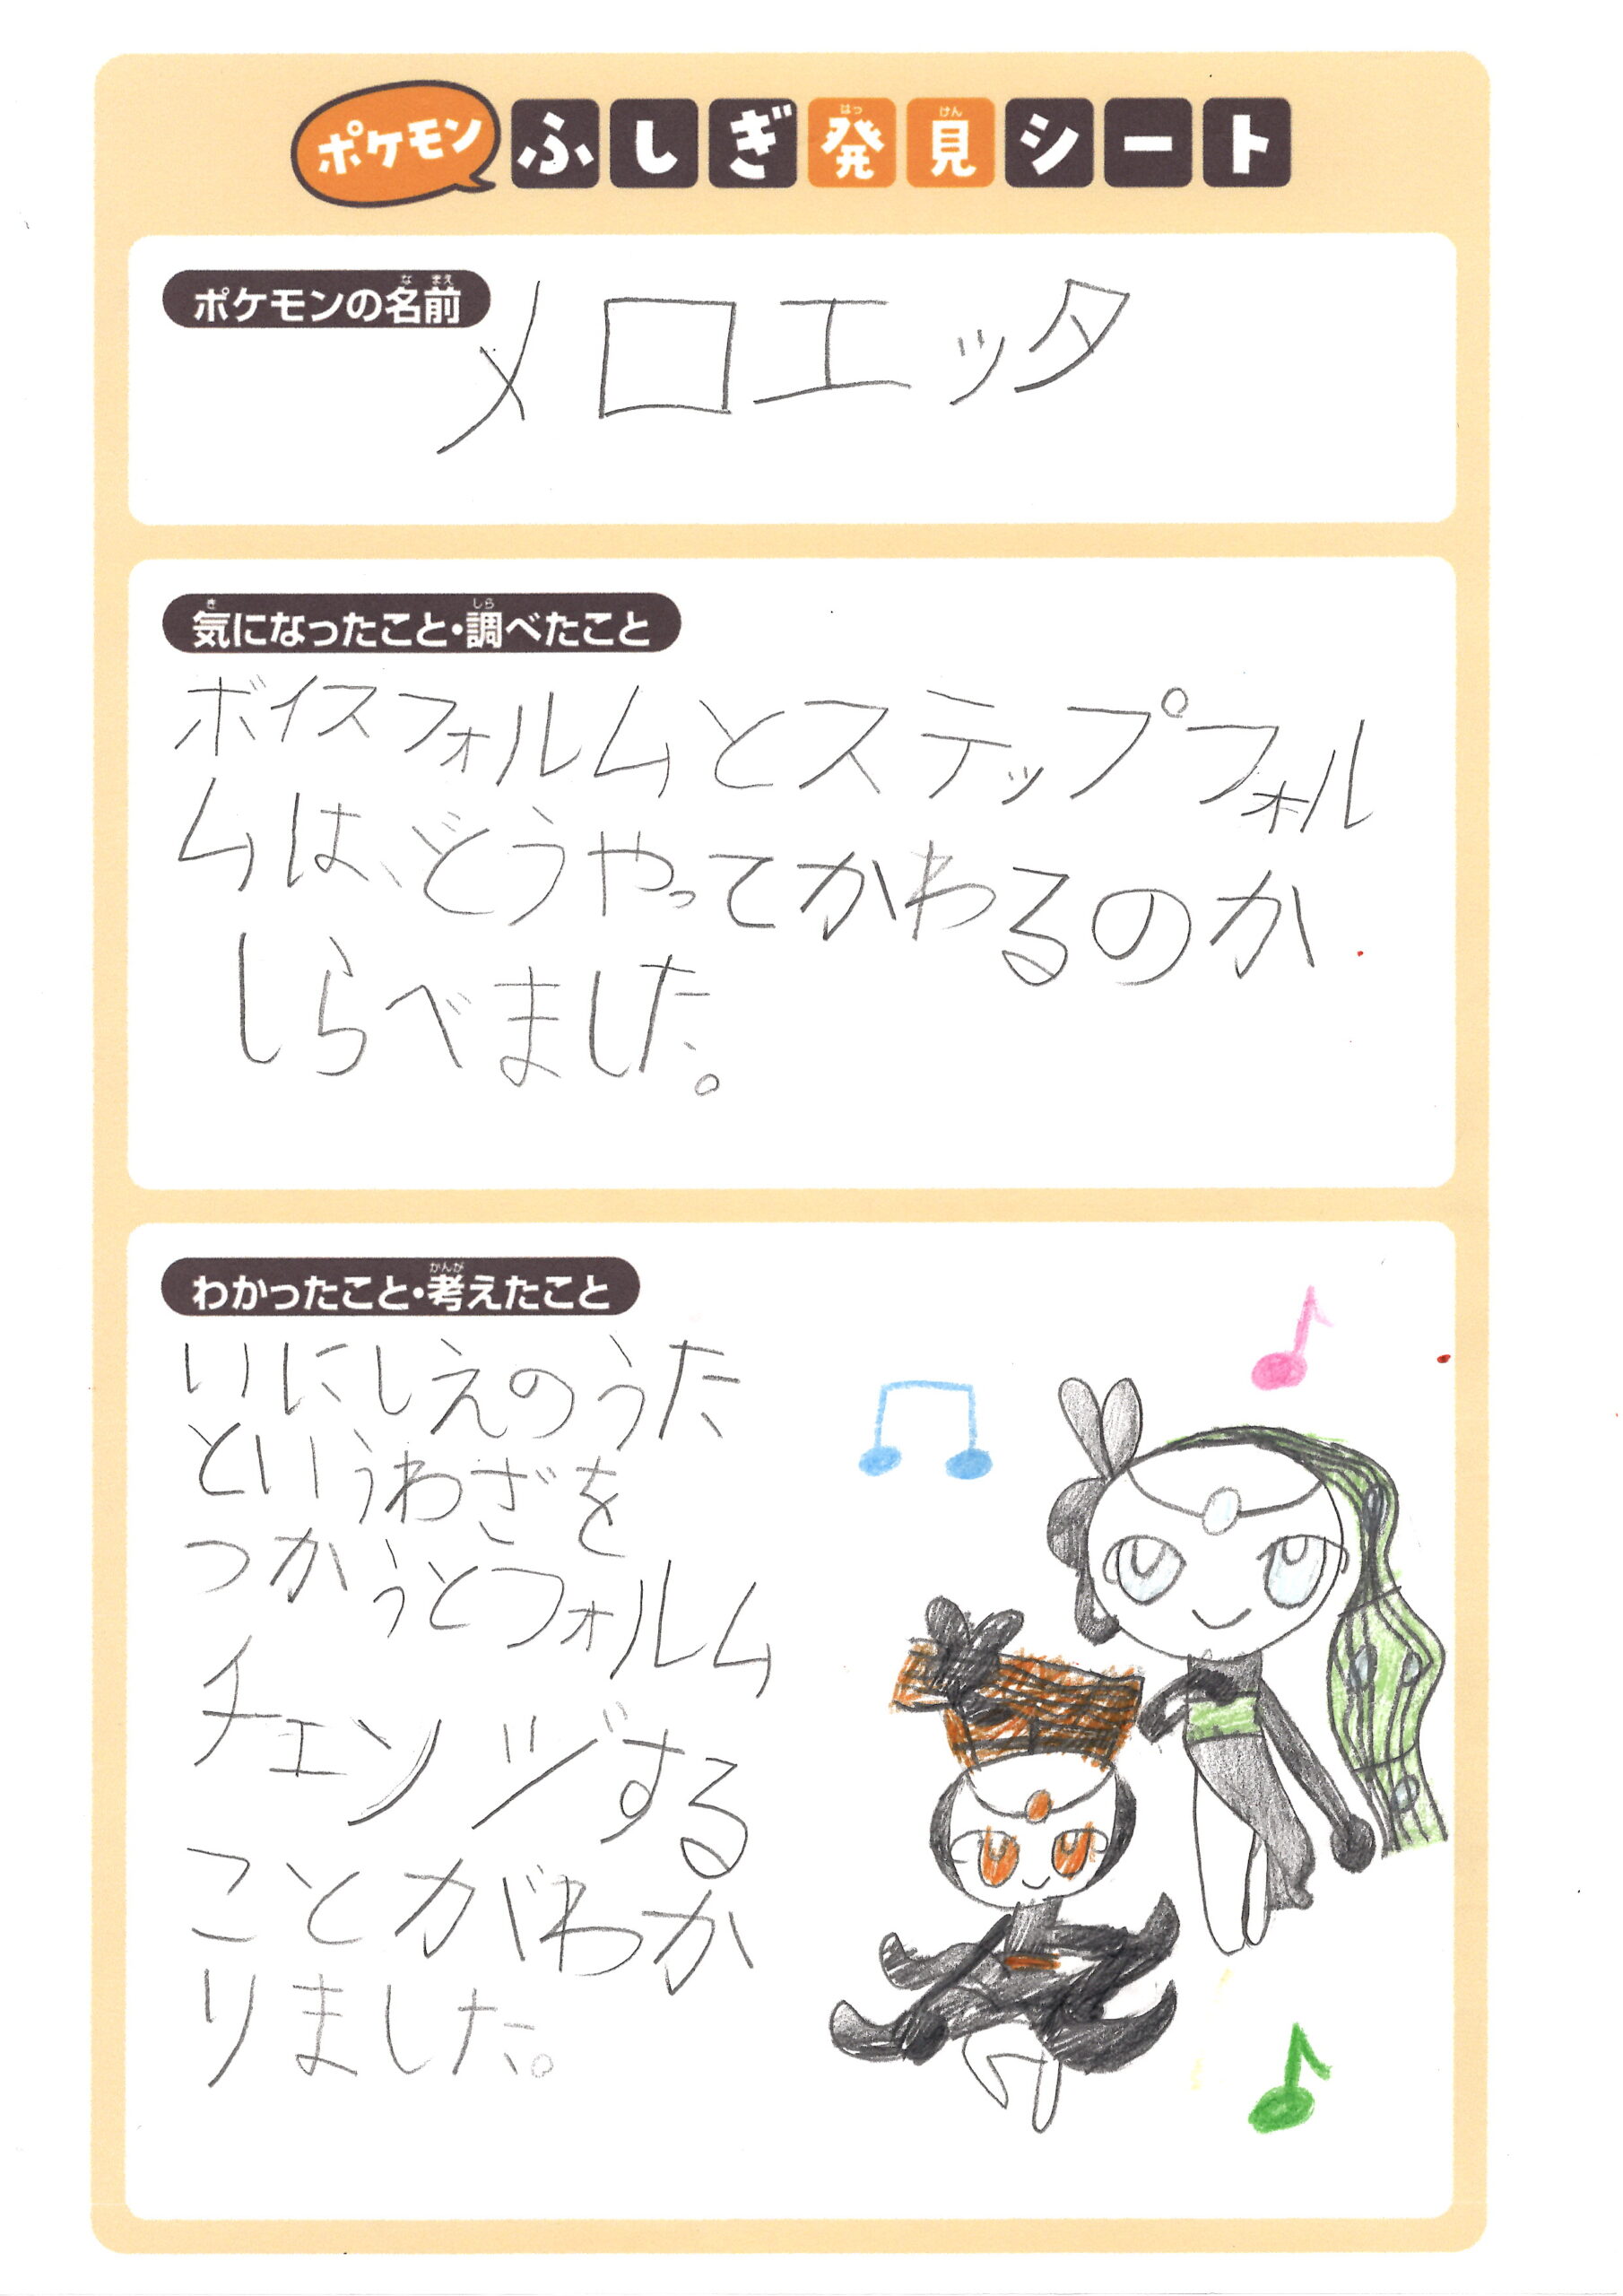 ポケモン ふしぎ発見シート
はっ けん
ポケモンの名前
な まえ
メロエッタ
気になったこと・調べたこと
き しら
ボイスフォルムとステップフォル
ムは、どうやってかわるのか
しらべました。
わかったこと・考えたこと
かんが
いにしえのうた
というわざを
つかうとフォルム
チェンジする
ことがわか
りました。